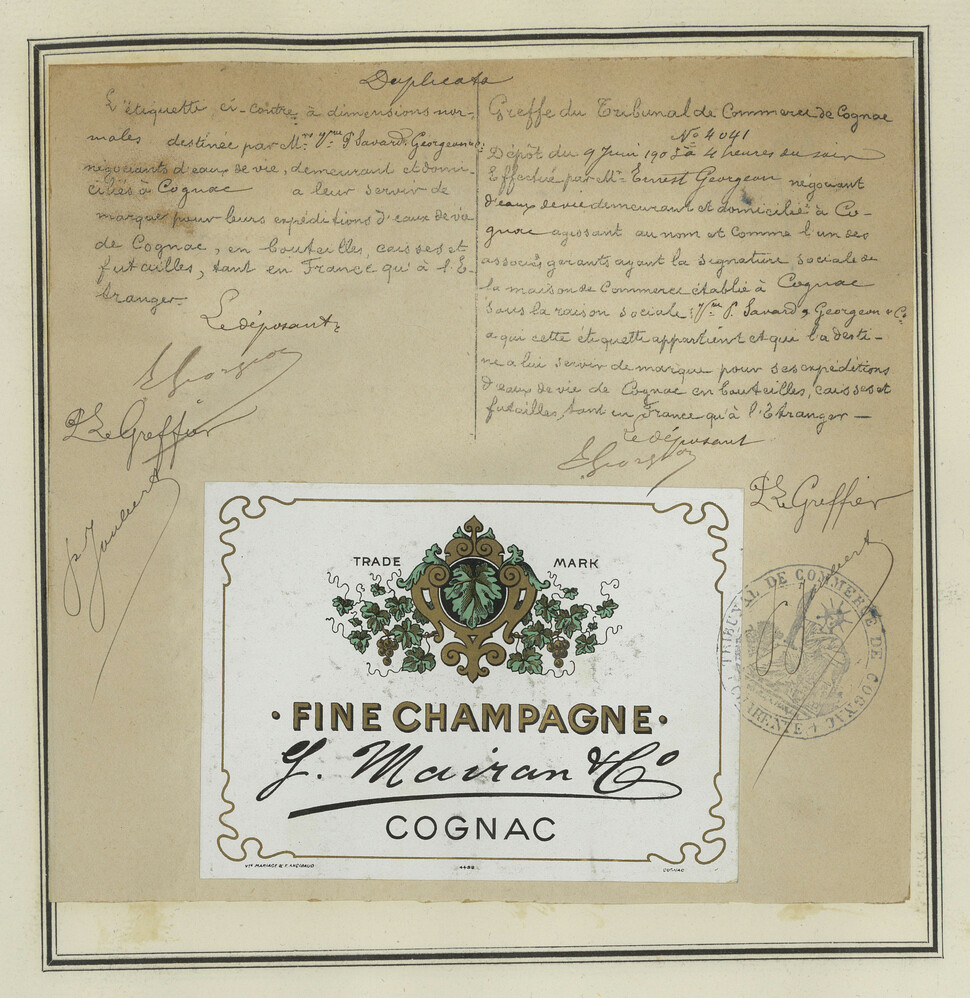 Duplicata
L'étiquette ci-contre, à dimensions nor-
males destinée par M.rs Vve P. Savard, Georgeon &
négociants d'eaux de vie, demeurant et domi-
ciliés à Cognac a leur servir de
marque pour leurs expéditions d'eaux de vie
de Cognac, en bouteilles, caisses et
futailles, tant en France qu'à l'E-
tranger.
Le déposant,
E Georgeon
P. Le Greffier
P Joubert
Greffe du Tribunal de Commerce de Cognac
No 4041
Dépôt du 9 Juin 190 à 4 heures du soir
Effectué par Mr. Ernest Georgeon négociant
d'eaux de vie demeurant et domicilié à Co-
gnac agissant au nom et comme l'un des
associés gérants ayant la signature sociale de
la maison de Commerce établie à Cognac
sous la raison sociale: Vve P. Savard, Georgeon & Co.
a qui cette étiquette appartient et qui l'a desti-
née a lui servir de marque pour ses expéditions
d'eaux de vie de Cognac en bouteilles, caisses et
futailles, tant en France qu'à l'Etranger —
Le déposant
E Georgeon
P. Le Greffier
Joubert
TRIBUNAL DE COMMERCE DE COGNAC
CHARENTE
TRADE MARK
· FINE CHAMPAGNE ·
J. Mairan & Co
COGNAC
Vve MARIAGE & F. ANGIBAUD
COGNAC